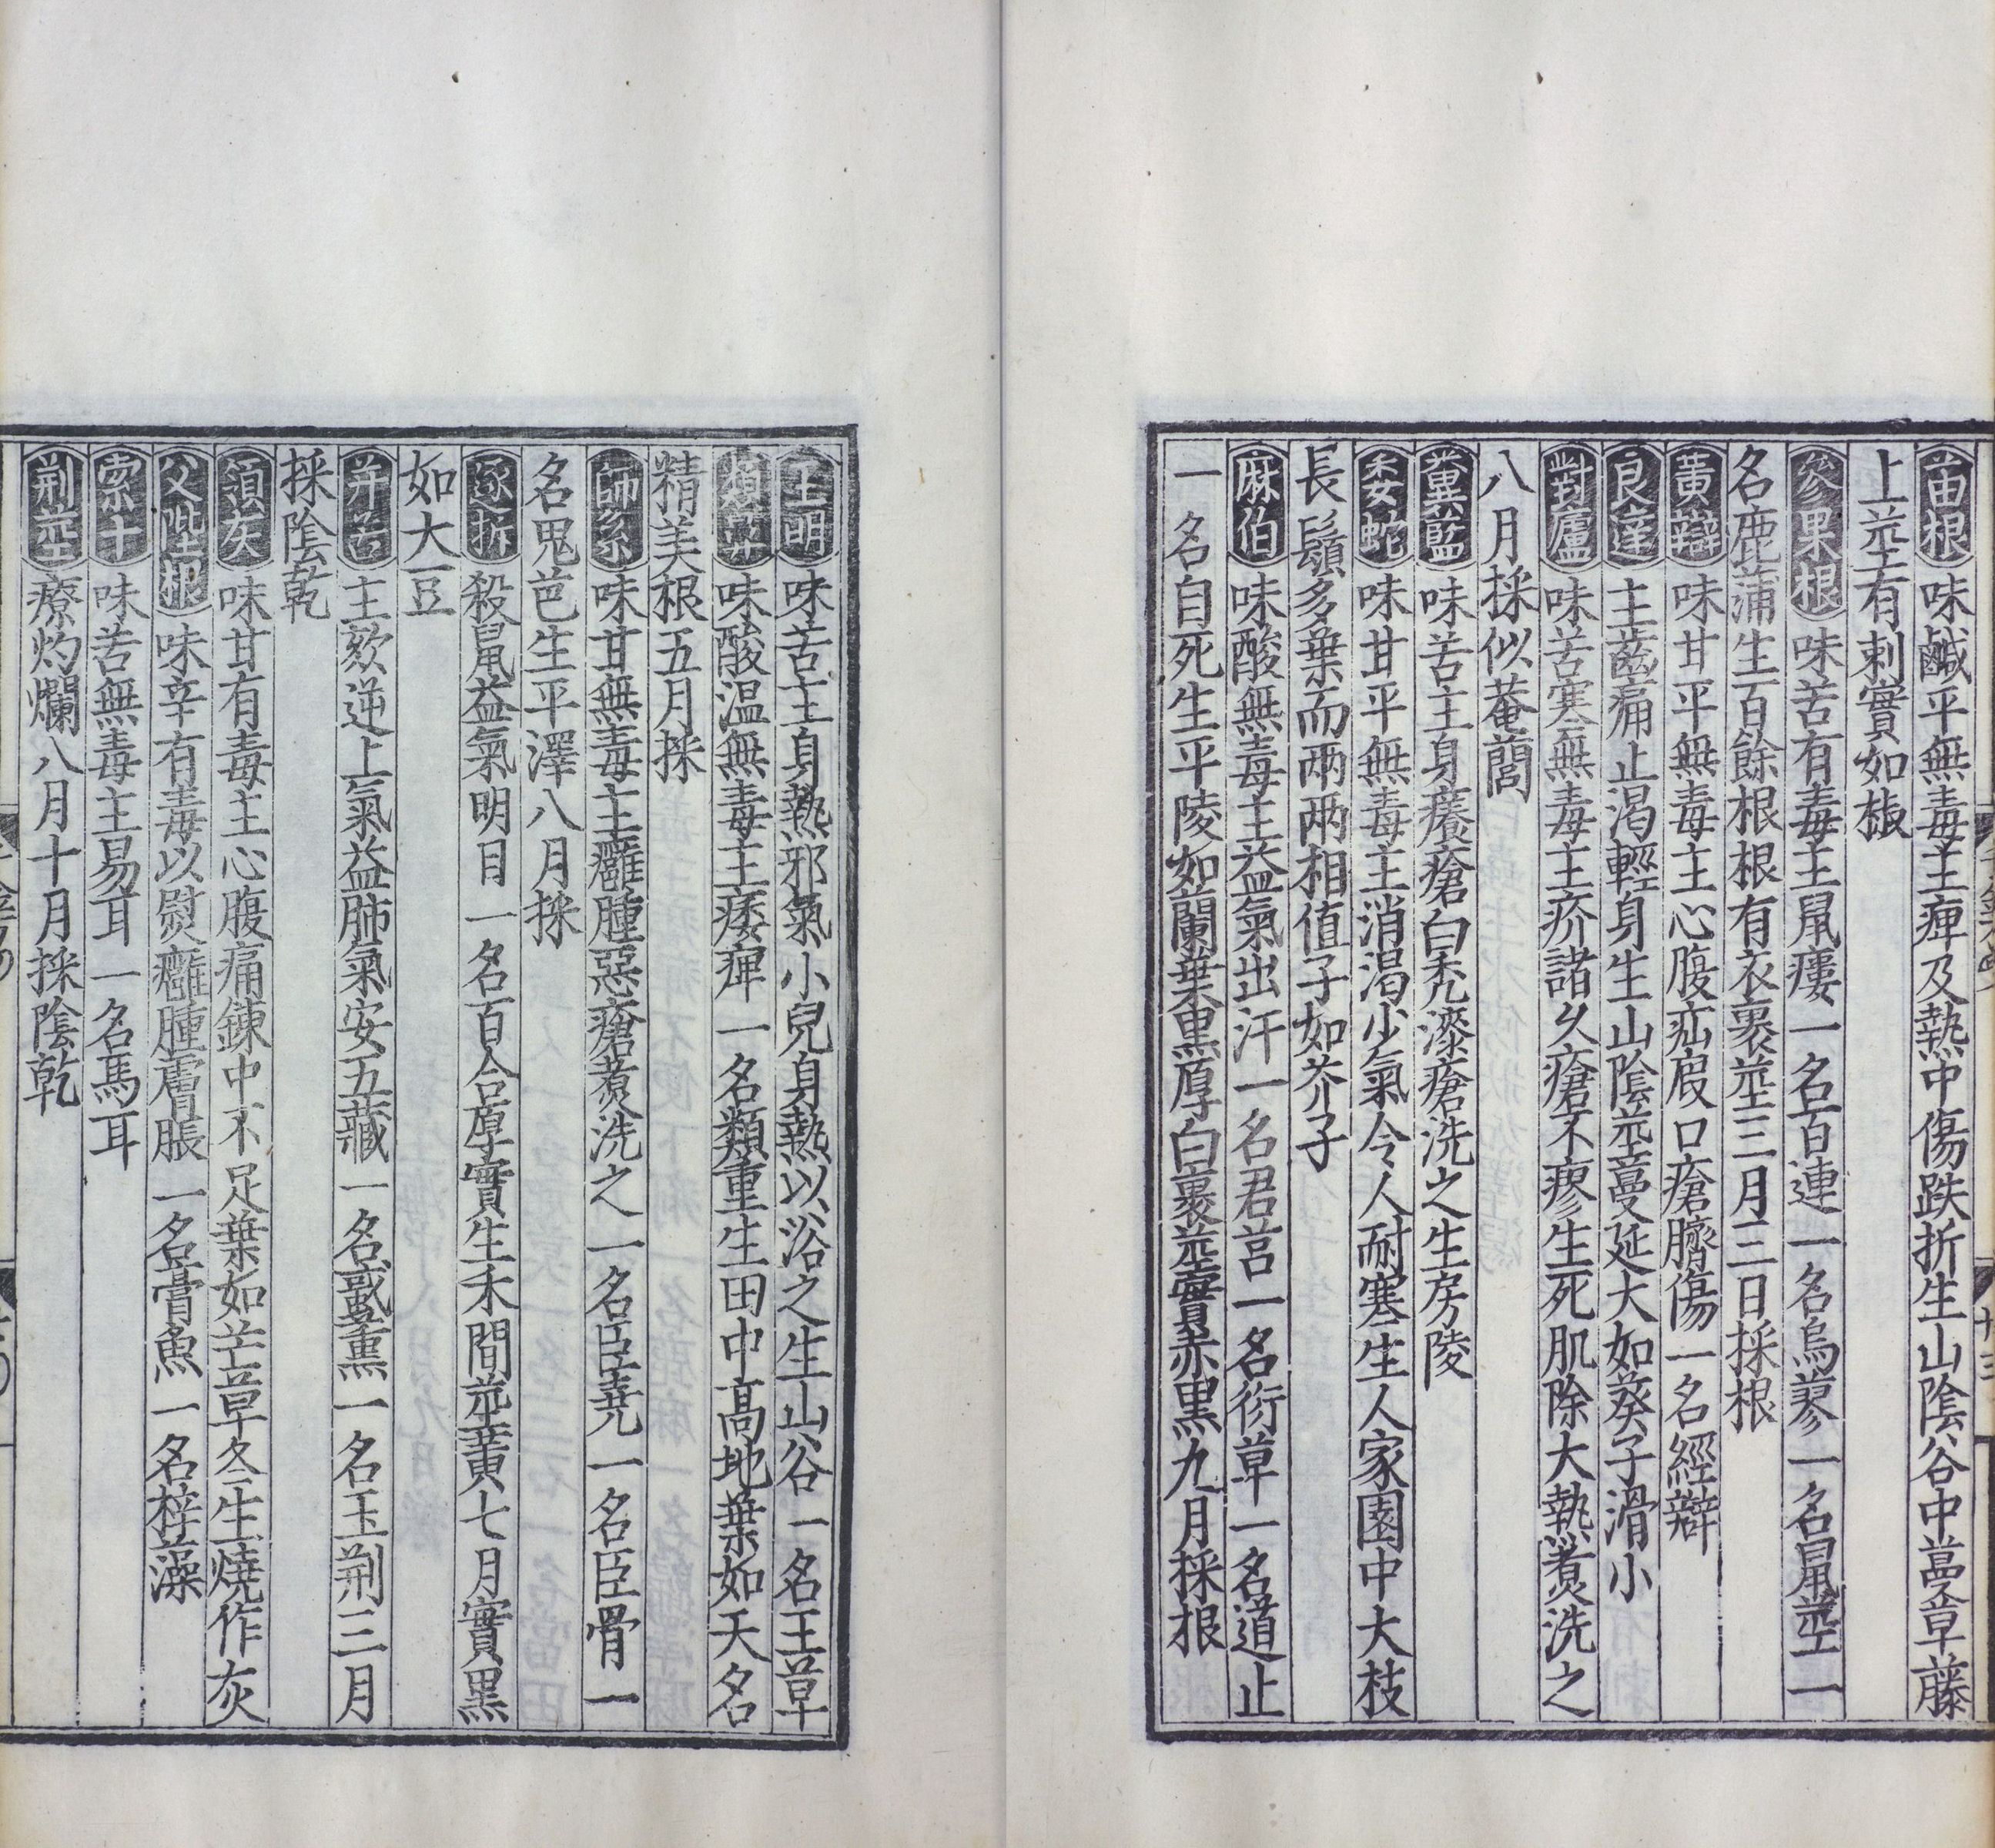 苗根味鹹平無毒主痺及熱中傷跌折生山陰谷中蔓草藤
上莖有刺實如椒
參果根味苦有毒主鼠瘻一名百連一名烏蓼一名鼠莖一
名鹿蒲生百餘根根有衣裹莖三月三日採根
黃辯味甘平無毒主心腹疝瘕口瘡臍傷一名經辯
良達主齒痛止渴輕身生山陰莖蔓延大如葵子滑小
對廬味苦寒無毒主疥諸久瘡不瘳生死肌除大熱煑洗之
八月採似菴䕡
糞藍味苦主身癢瘡白禿漆瘡洗之生房陵
委蛇味甘平無毒主消渴少氣令人耐寒生人家園中大枝
長鬚多葉而兩兩相值子如芥子
麻伯味酸無毒主益氣出汗一名君莒一名衍草一名道止
一名自死生平陵如蘭葉黑厚白裹莖實赤黑九月採根
王明味苦主身熱邪氣小兒身熱以浴之生山谷一名王草
類鼻味酸温無毒主痿痺一名類重生田中高地葉如天名
精美根五月採
師系味甘無毒主癰腫惡瘡煑洗之一名臣堯一名臣骨一
名鬼芭生平澤八月採
逐折殺鼠益氣明目一名百合厚實生禾間莖黃七月實黑
如大豆
并苦主欬逆上氣益肺氣安五藏一名蜮薰一名玉荆三月
採陰乾
領灰味甘有毒主心腹痛鍊中不足葉如芒草冬生燒作灰
父陛根味辛有毒以熨癰腫膚脹一名膏魚一名梓藻
索十味苦無毒主易耳一名馬耳
荆莖療灼爛八月十月採陰乾